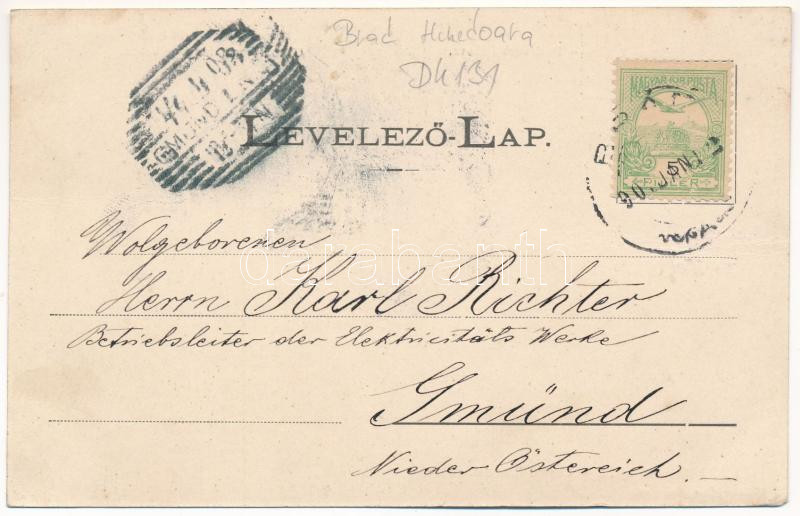 Brad Hunedoara
DK131
MAGYAR KIR. POSTA
5
FILLER
LEVELEZŐ-LAP.
Wolgeborenen
Herrn Karl Richter
Betriebsleiter der Elektricitäts Werke
Gmünd
Nieder Östereich.
darabanth